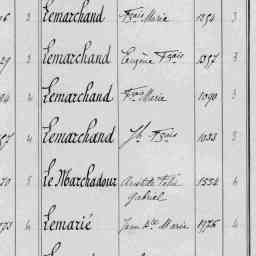 3 Lemarchand Frçois Marie 1394 3
3 Lemarchand Eugène Frçois 1397 3
4 Lemarchand Frçois Marie 1090 3
4 Lemarchand Jh Frçois 1033 3
5 Le Marchadour Aristide Félix 1554 4
Gabriel
4 Lemarié Jean Marie 1976 4